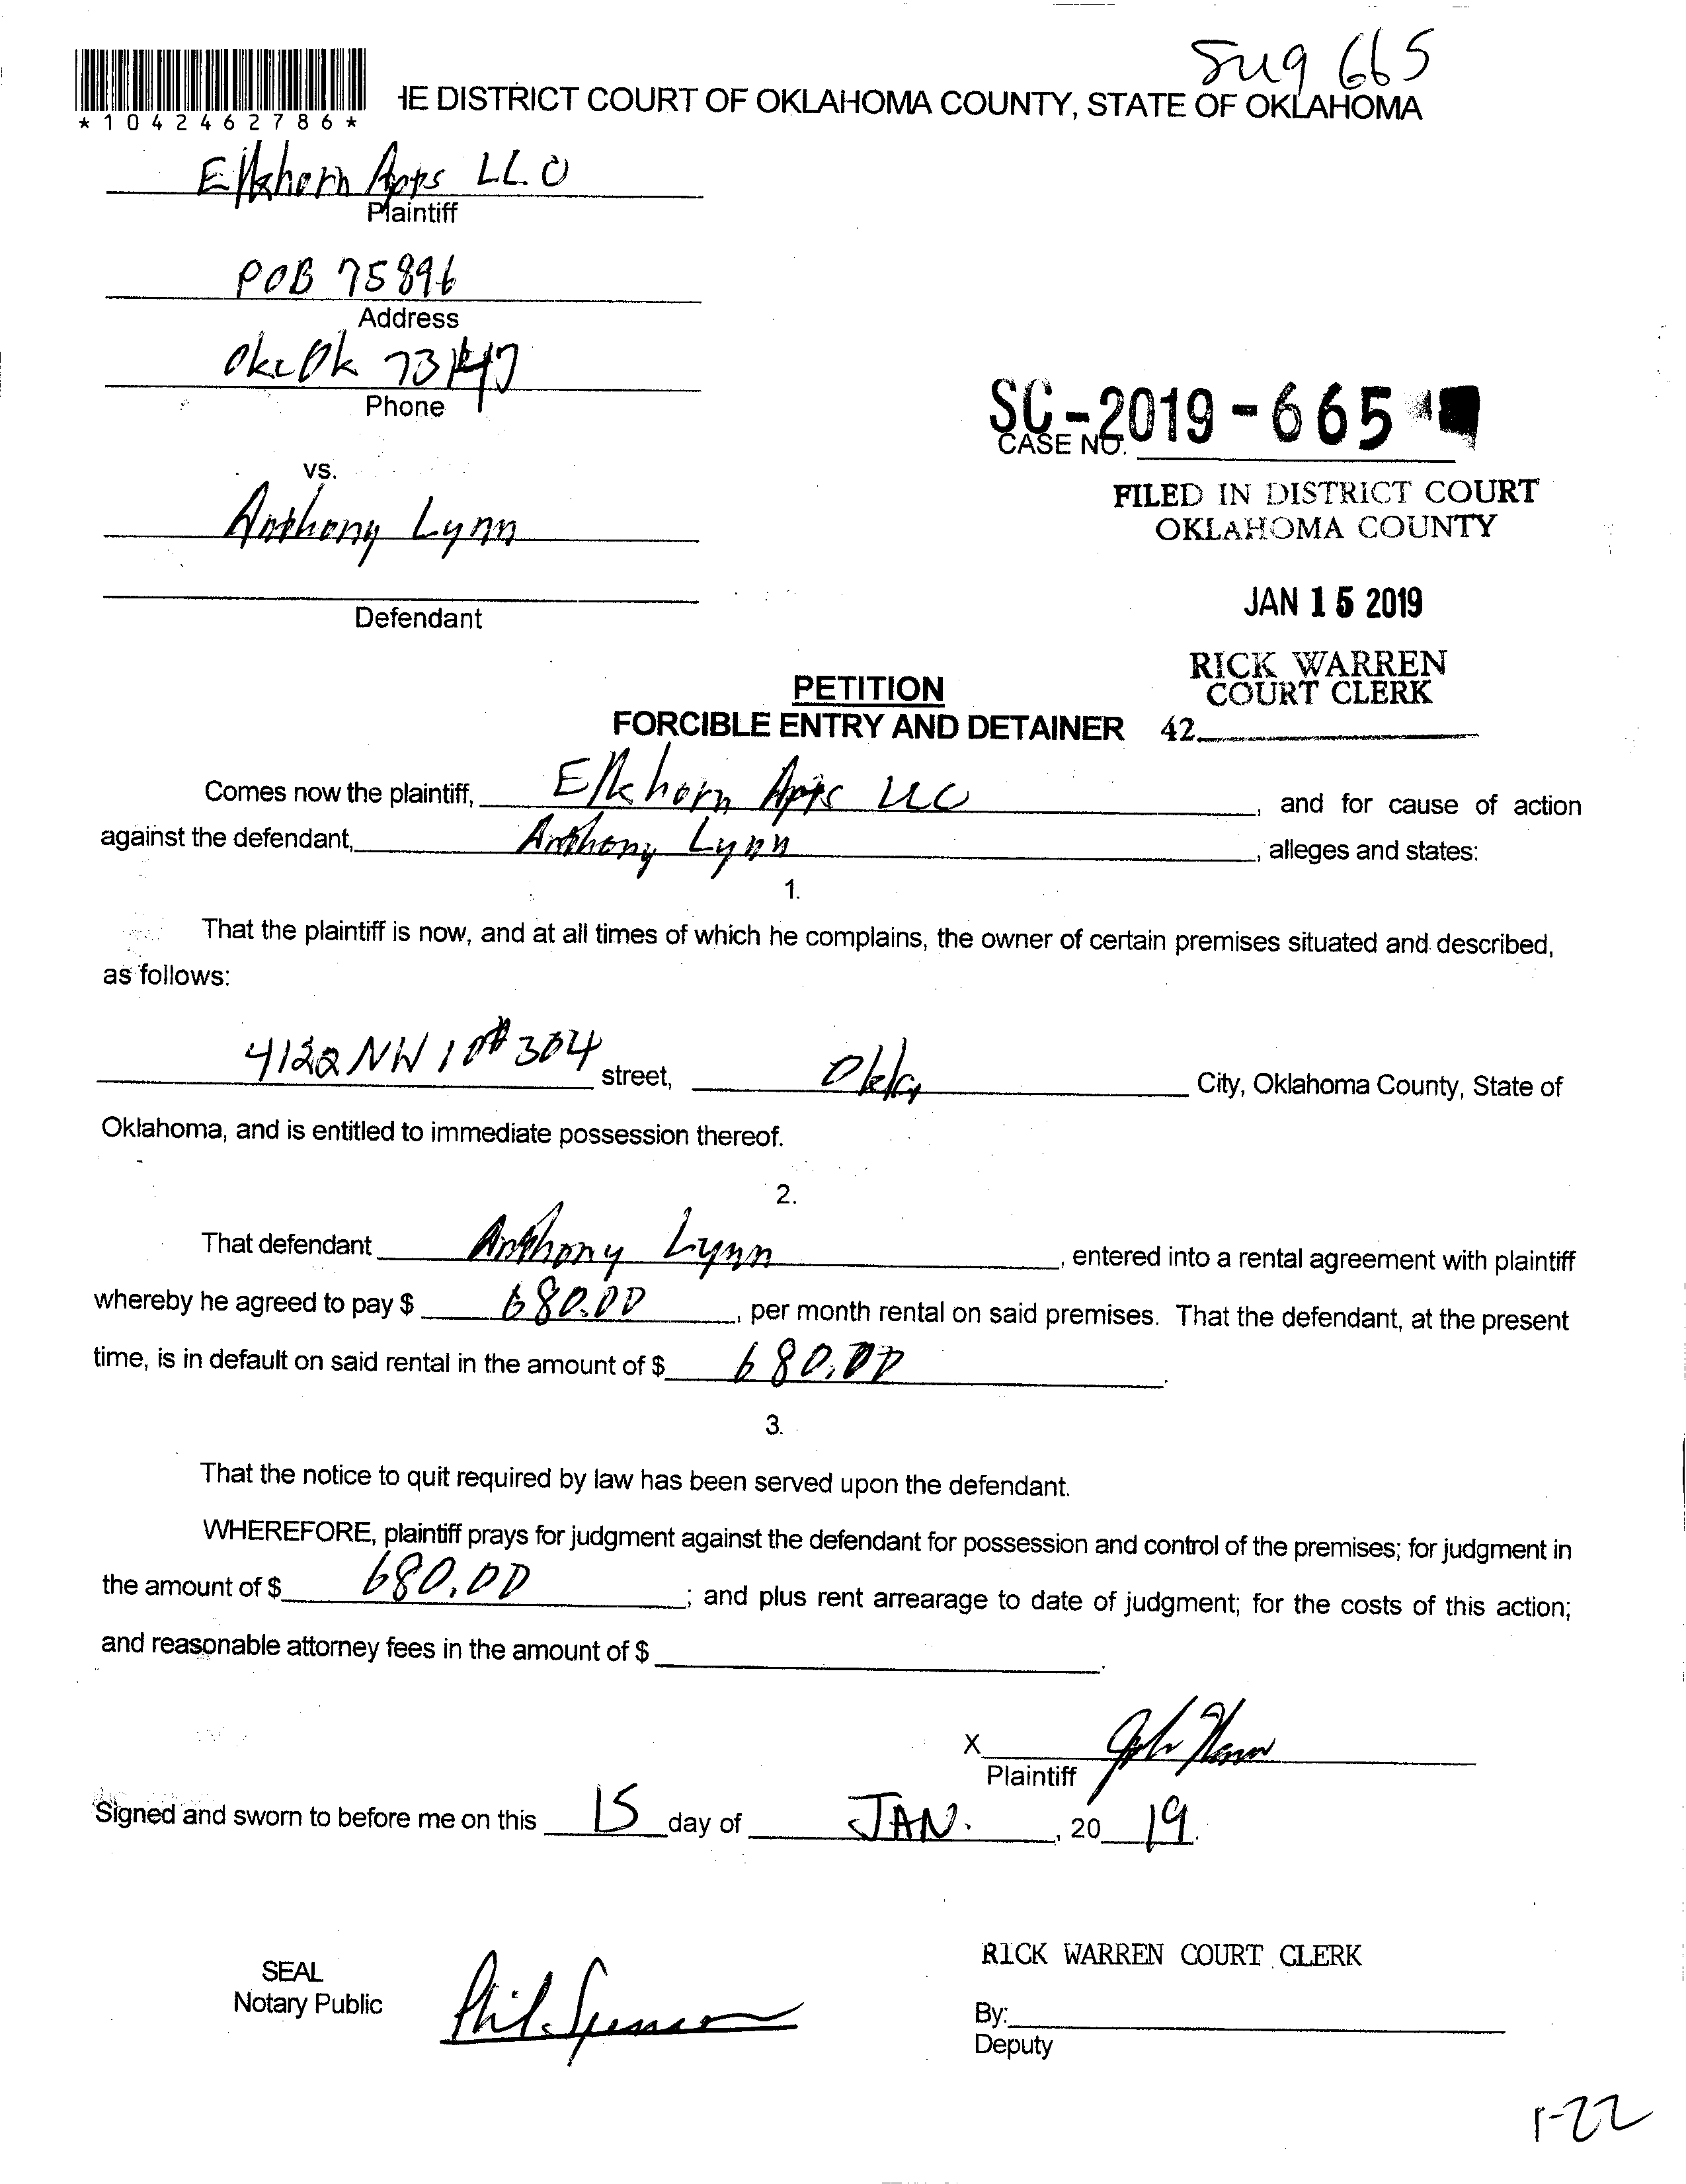 Sug 665
*1042462786*
HE DISTRICT COURT OF OKLAHOMA COUNTY, STATE OF OKLAHOMA
Elkhorn Apts LLC
Plaintiff
POB 75896
Address
Okc Ok 73147
Phone
SC-2019-665
CASE NO.
vs.
FILED IN DISTRICT COURT
OKLAHOMA COUNTY
Anthony Lynn
JAN 15 2019
Defendant
RICK WARREN
COURT CLERK
PETITION
FORCIBLE ENTRY AND DETAINER 42
Comes now the plaintiff, Elkhorn Apts LLC, and for cause of action
against the defendant, Anthony Lynn, alleges and states:
1.
That the plaintiff is now, and at all times of which he complains, the owner of certain premises situated and described,
as follows:
4122 NW 10 #304 street, Okla City, Oklahoma County, State of
Oklahoma, and is entitled to immediate possession thereof.
2.
That defendant Anthony Lynn, entered into a rental agreement with plaintiff
whereby he agreed to pay $ 680.00, per month rental on said premises. That the defendant, at the present
time, is in default on said rental in the amount of $ 680.00.
3.
That the notice to quit required by law has been served upon the defendant.
WHEREFORE, plaintiff prays for judgment against the defendant for possession and control of the premises; for judgment in
the amount of $ 680.00; and plus rent arrearage to date of judgment; for the costs of this action;
and reasonable attorney fees in the amount of $ .
X
Plaintiff
Signed and sworn to before me on this 15 day of JAN., 20 19.
RICK WARREN COURT CLERK
SEAL
Notary Public
By:
Deputy
1-22